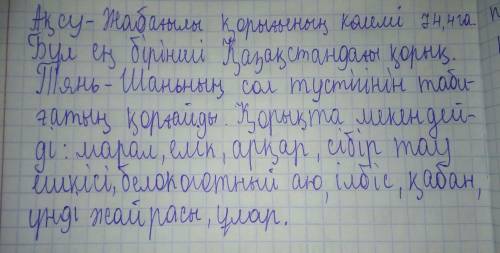 Ақсу-Жабағылы қорығының көлемі 74,4га
Бұл ең бірінші Қазақстандағы қорық.
Тянь-Шаньның сол түстігінін таби-
ғатың қорғайды. Қорықта мекендей-
ді: марал, елік, арқар, сібір тау
ешкісі, белокоготный аю, ілбіс, қабан,
үнді жайрасы, ұлар.